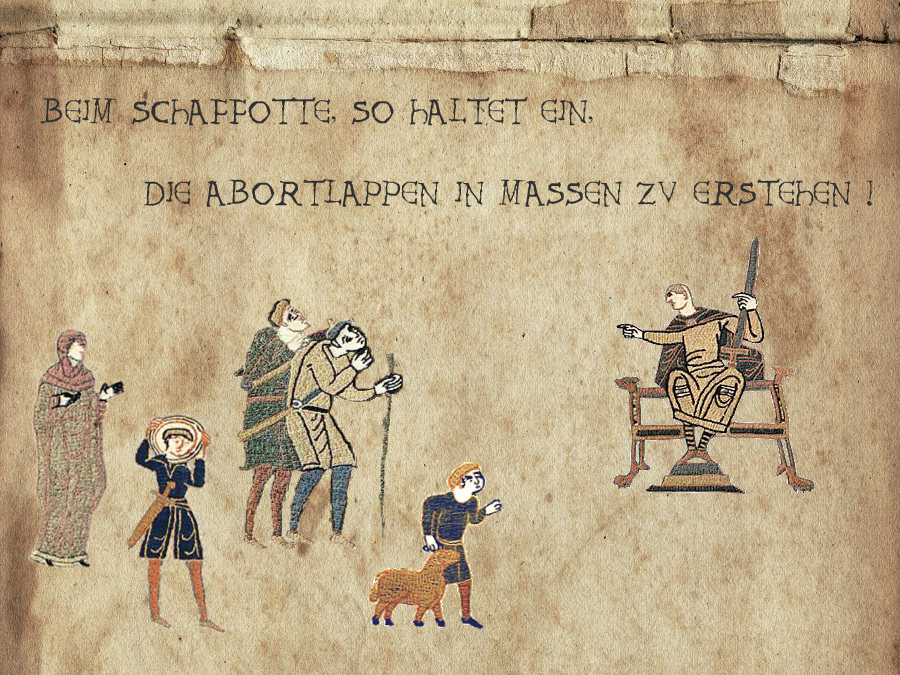 BEIM SCHAFFOTTE, SO HALTET EIN,
DIE ABORTLAPPEN IN MASSEN ZV ERSTEHEN !